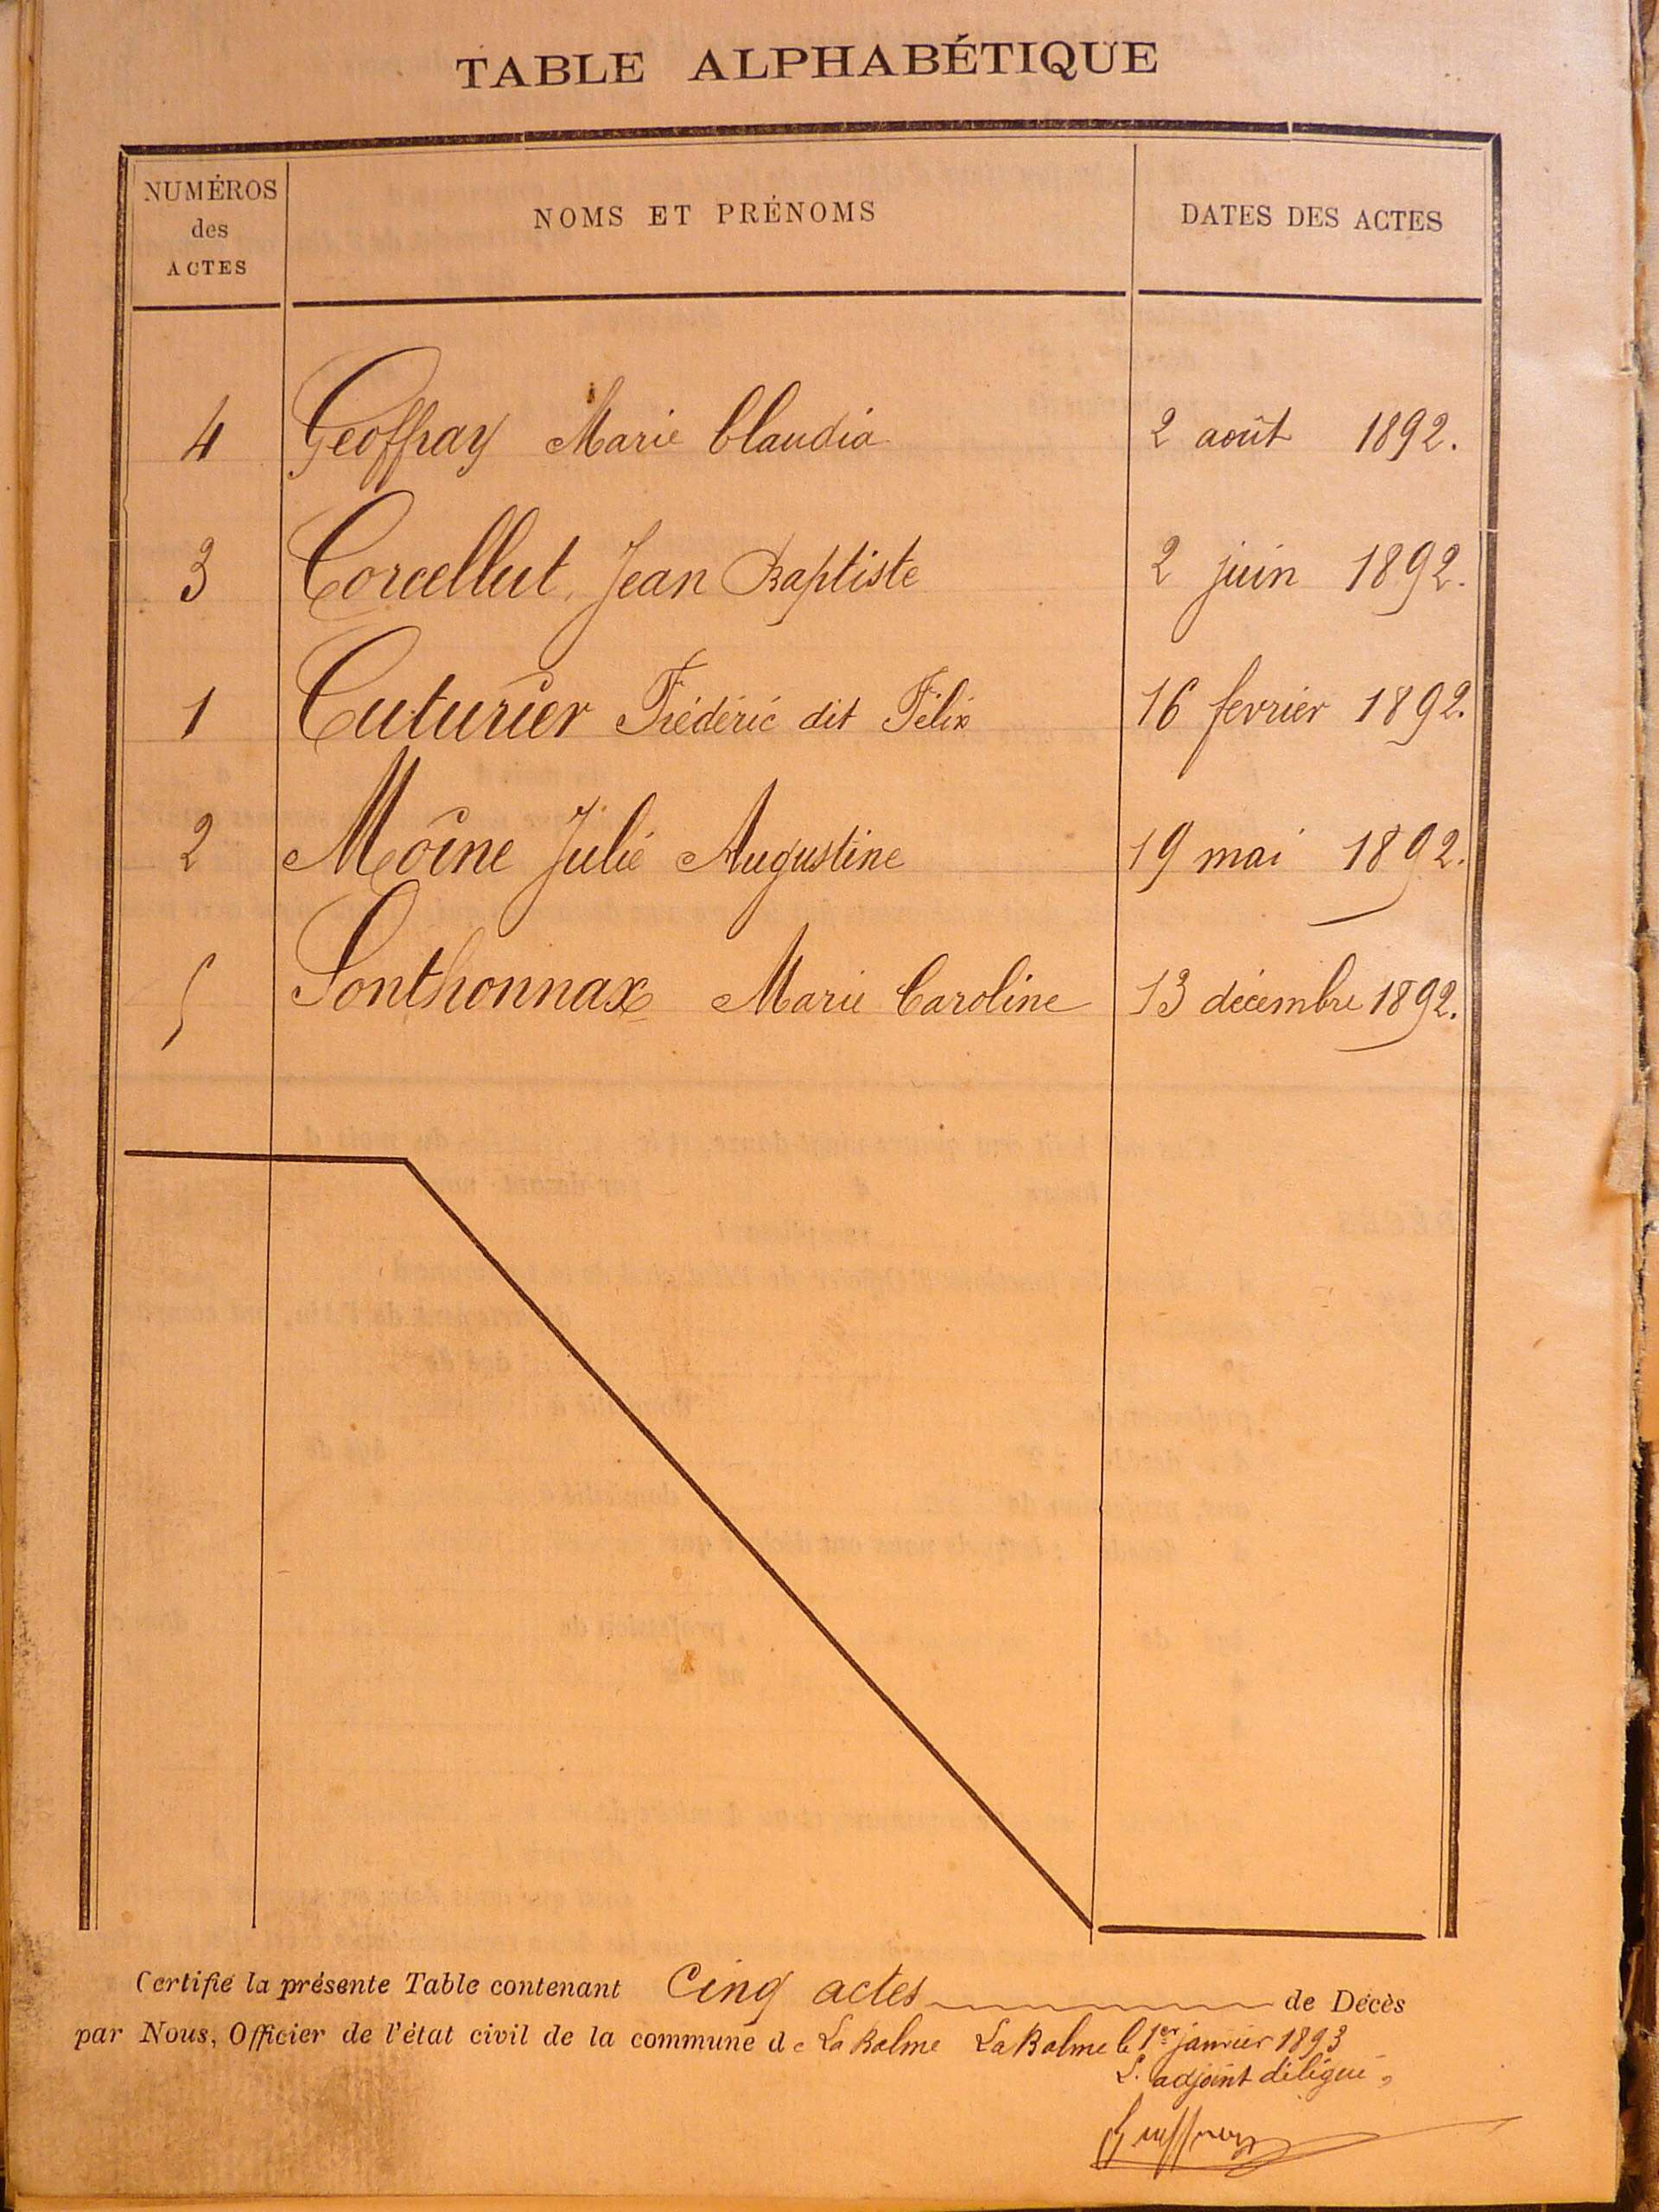 TABLE ALPHABÉTIQUE
NUMÉROS des ACTES NOMS ET PRÉNOMS DATES DES ACTES
4 Geoffray Marie Claudia 2 août 1892.
3 Corcellut Jean Baptiste 2 juin 1892.
1 Cuturier Frédéric dit Félix 16 fevrier 1892.
2 Moine Julie Augustine 19 mai 1892.
5 Sonthonnax Marie Caroline 13 décembre 1892.
Certifié la présente Table contenant Cinq actes de Décès
par Nous, Officier de l'état civil de la commune de La Balme La Balme le 1er janvier 1893
L'adjoint délégué,